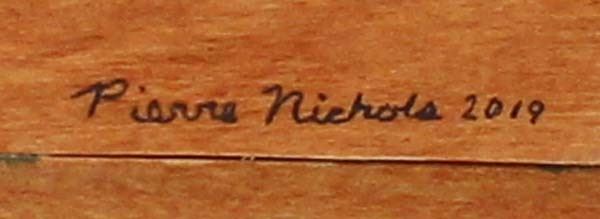 Pierre Nichols 2019